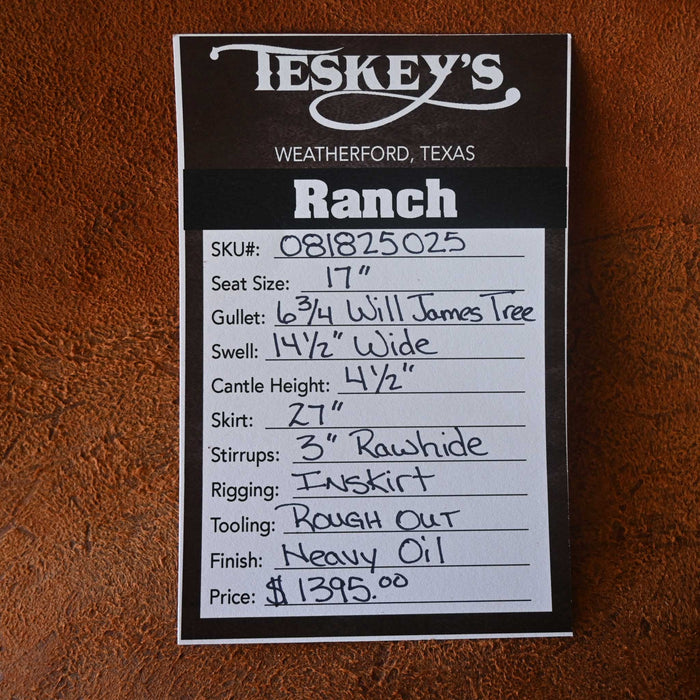 TESKEY'S
WEATHERFORD, TEXAS
Ranch
SKU#: 081825025
Seat Size: 17"
Gullet: 6 3/4 Will James Tree
Swell: 14 1/2" Wide
Cantle Height: 4 1/2"
Skirt: 27"
Stirrups: 3" Rawhide
Rigging: Inskirt
Tooling: Rough Out
Finish: Heavy Oil
Price: $1395.00